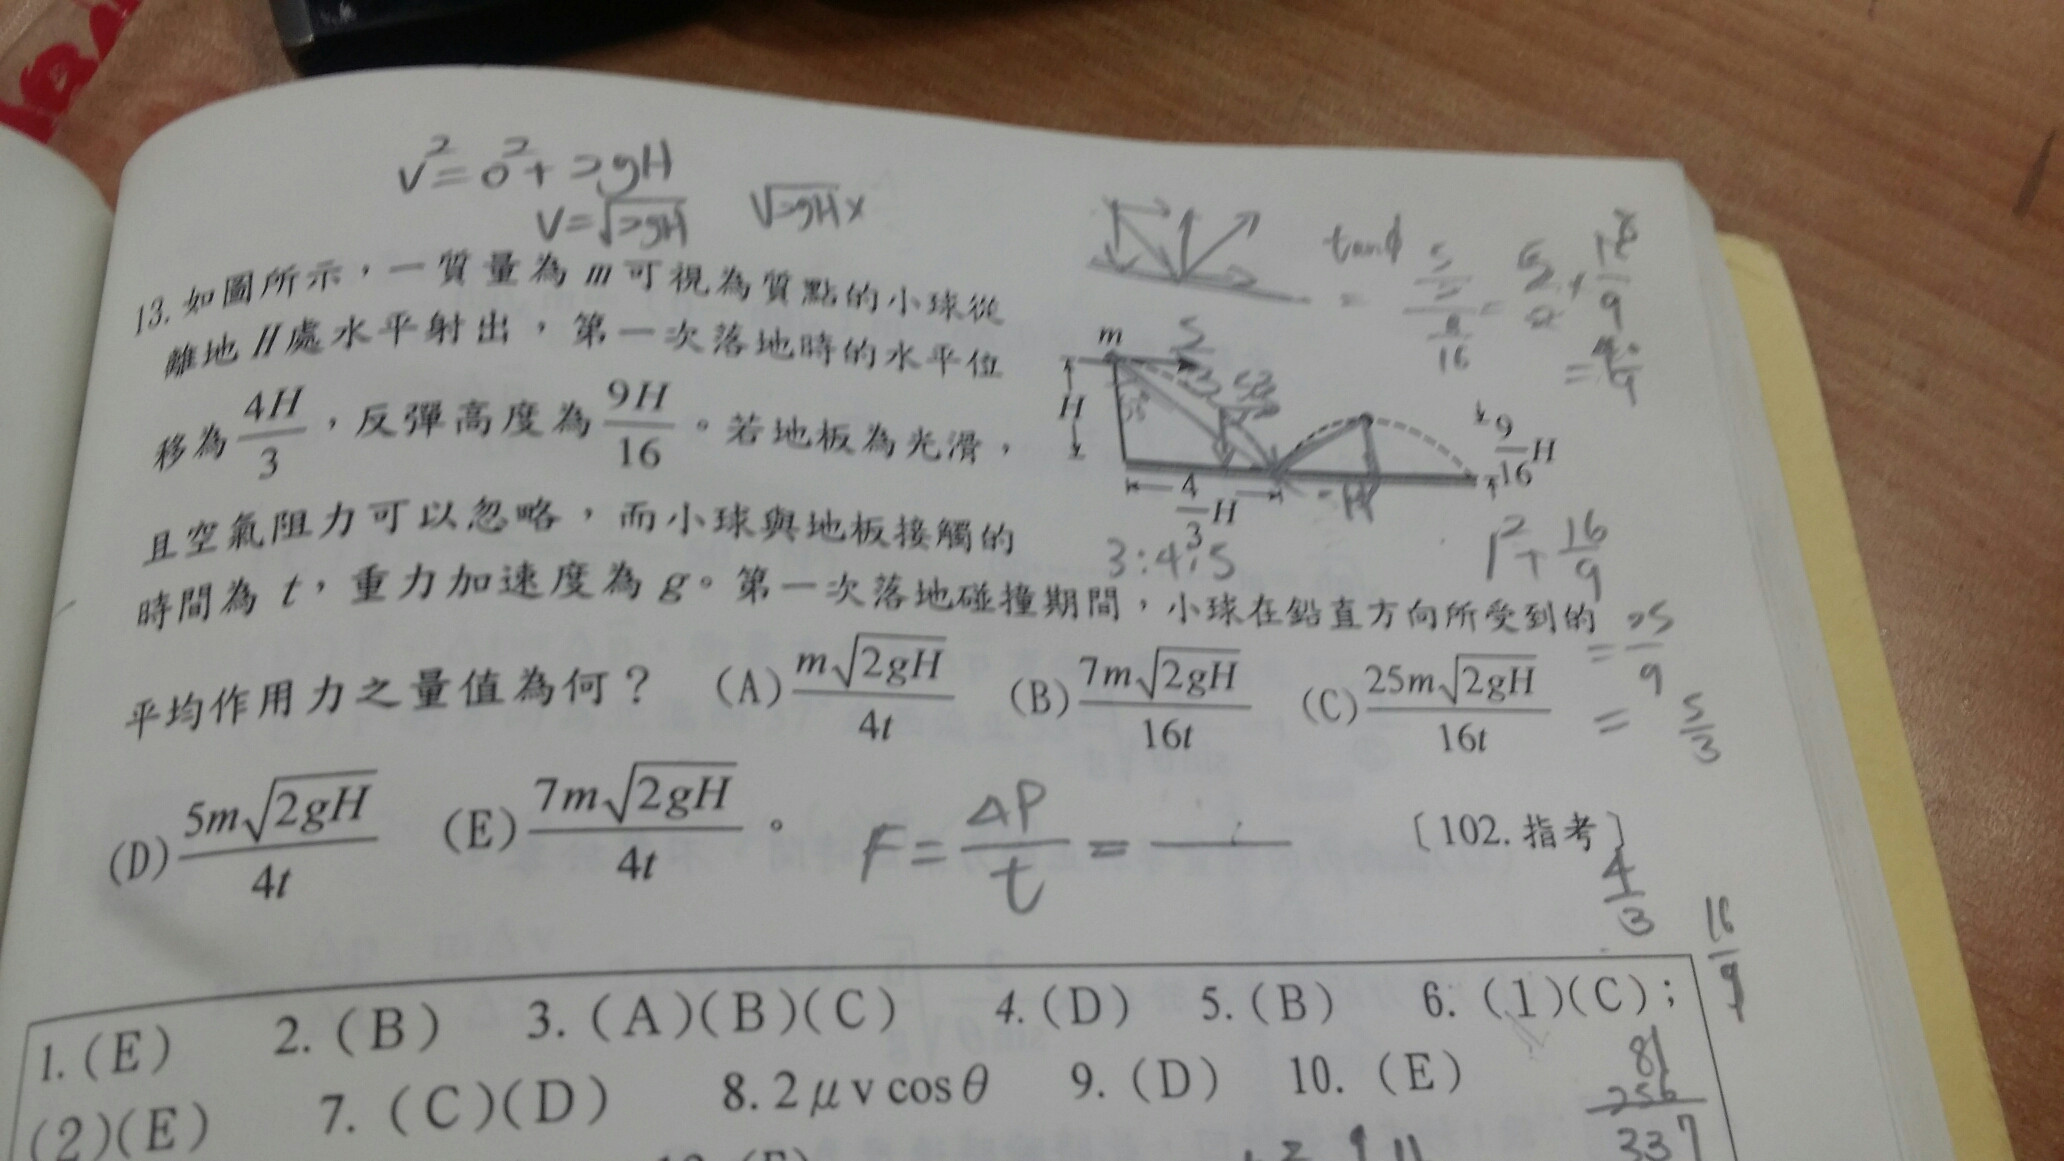 v²=0²+2gH
v=√2gH √2gH x
13.如圖所示，一質量為m可視為質點的小球從
離地H處水平射出，第一次落地時的水平位
移為4H/3，反彈高度為9H/16。若地板為光滑，
且空氣阻力可以忽略，而小球與地板接觸的
時間為t，重力加速度為g。第一次落地碰撞期間，小球在鉛直方向所受到的
平均作用力之量值為何？ (A) m√2gH/4t (B) 7m√2gH/16t (C) 25m√2gH/16t
(D) 5m√2gH/4t (E) 7m√2gH/4t。
〔102.指考〕
F=ΔP/t=
m
H
4/3 H
9/16 H
3:4:5
1²+16/9
=25/9
=5/3
4/3
16/9
81
256
337
1.(E) 2.(B) 3.(A)(B)(C) 4.(D) 5.(B) 6.(1)(C);
(2)(E) 7.(C)(D) 8.2μvcosθ 9.(D) 10.(E)